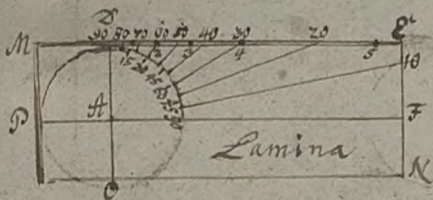 D
90 80 70 60 50 40 30 20
M E
3 4 5
10
15 30 45 60 75 90
P A F
Lamina
C N